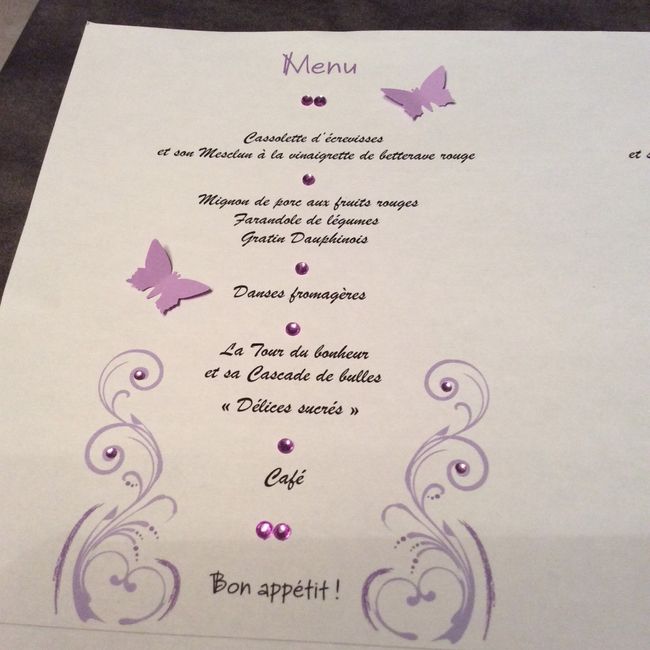 Menu
Cassolette d'écrevisses
et son Mesclun à la vinaigrette de betterave rouge
Mignon de porc aux fruits rouges
Farandole de légumes
Gratin Dauphinois
Danses fromagères
La Tour du bonheur
et sa Cascade de bulles
« Délices sucrés »
Café
Bon appétit !
et s